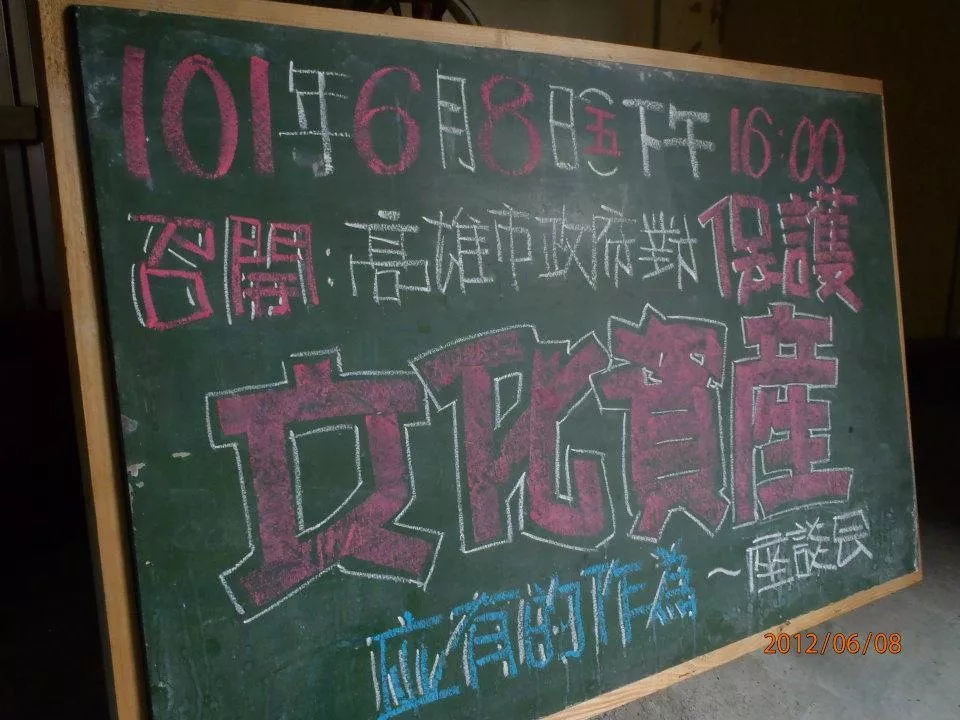 101年6月8日(五)下午16:00
召開:高雄市政府對保護
文化資產
应有的作為
~座談会
2012/06/08